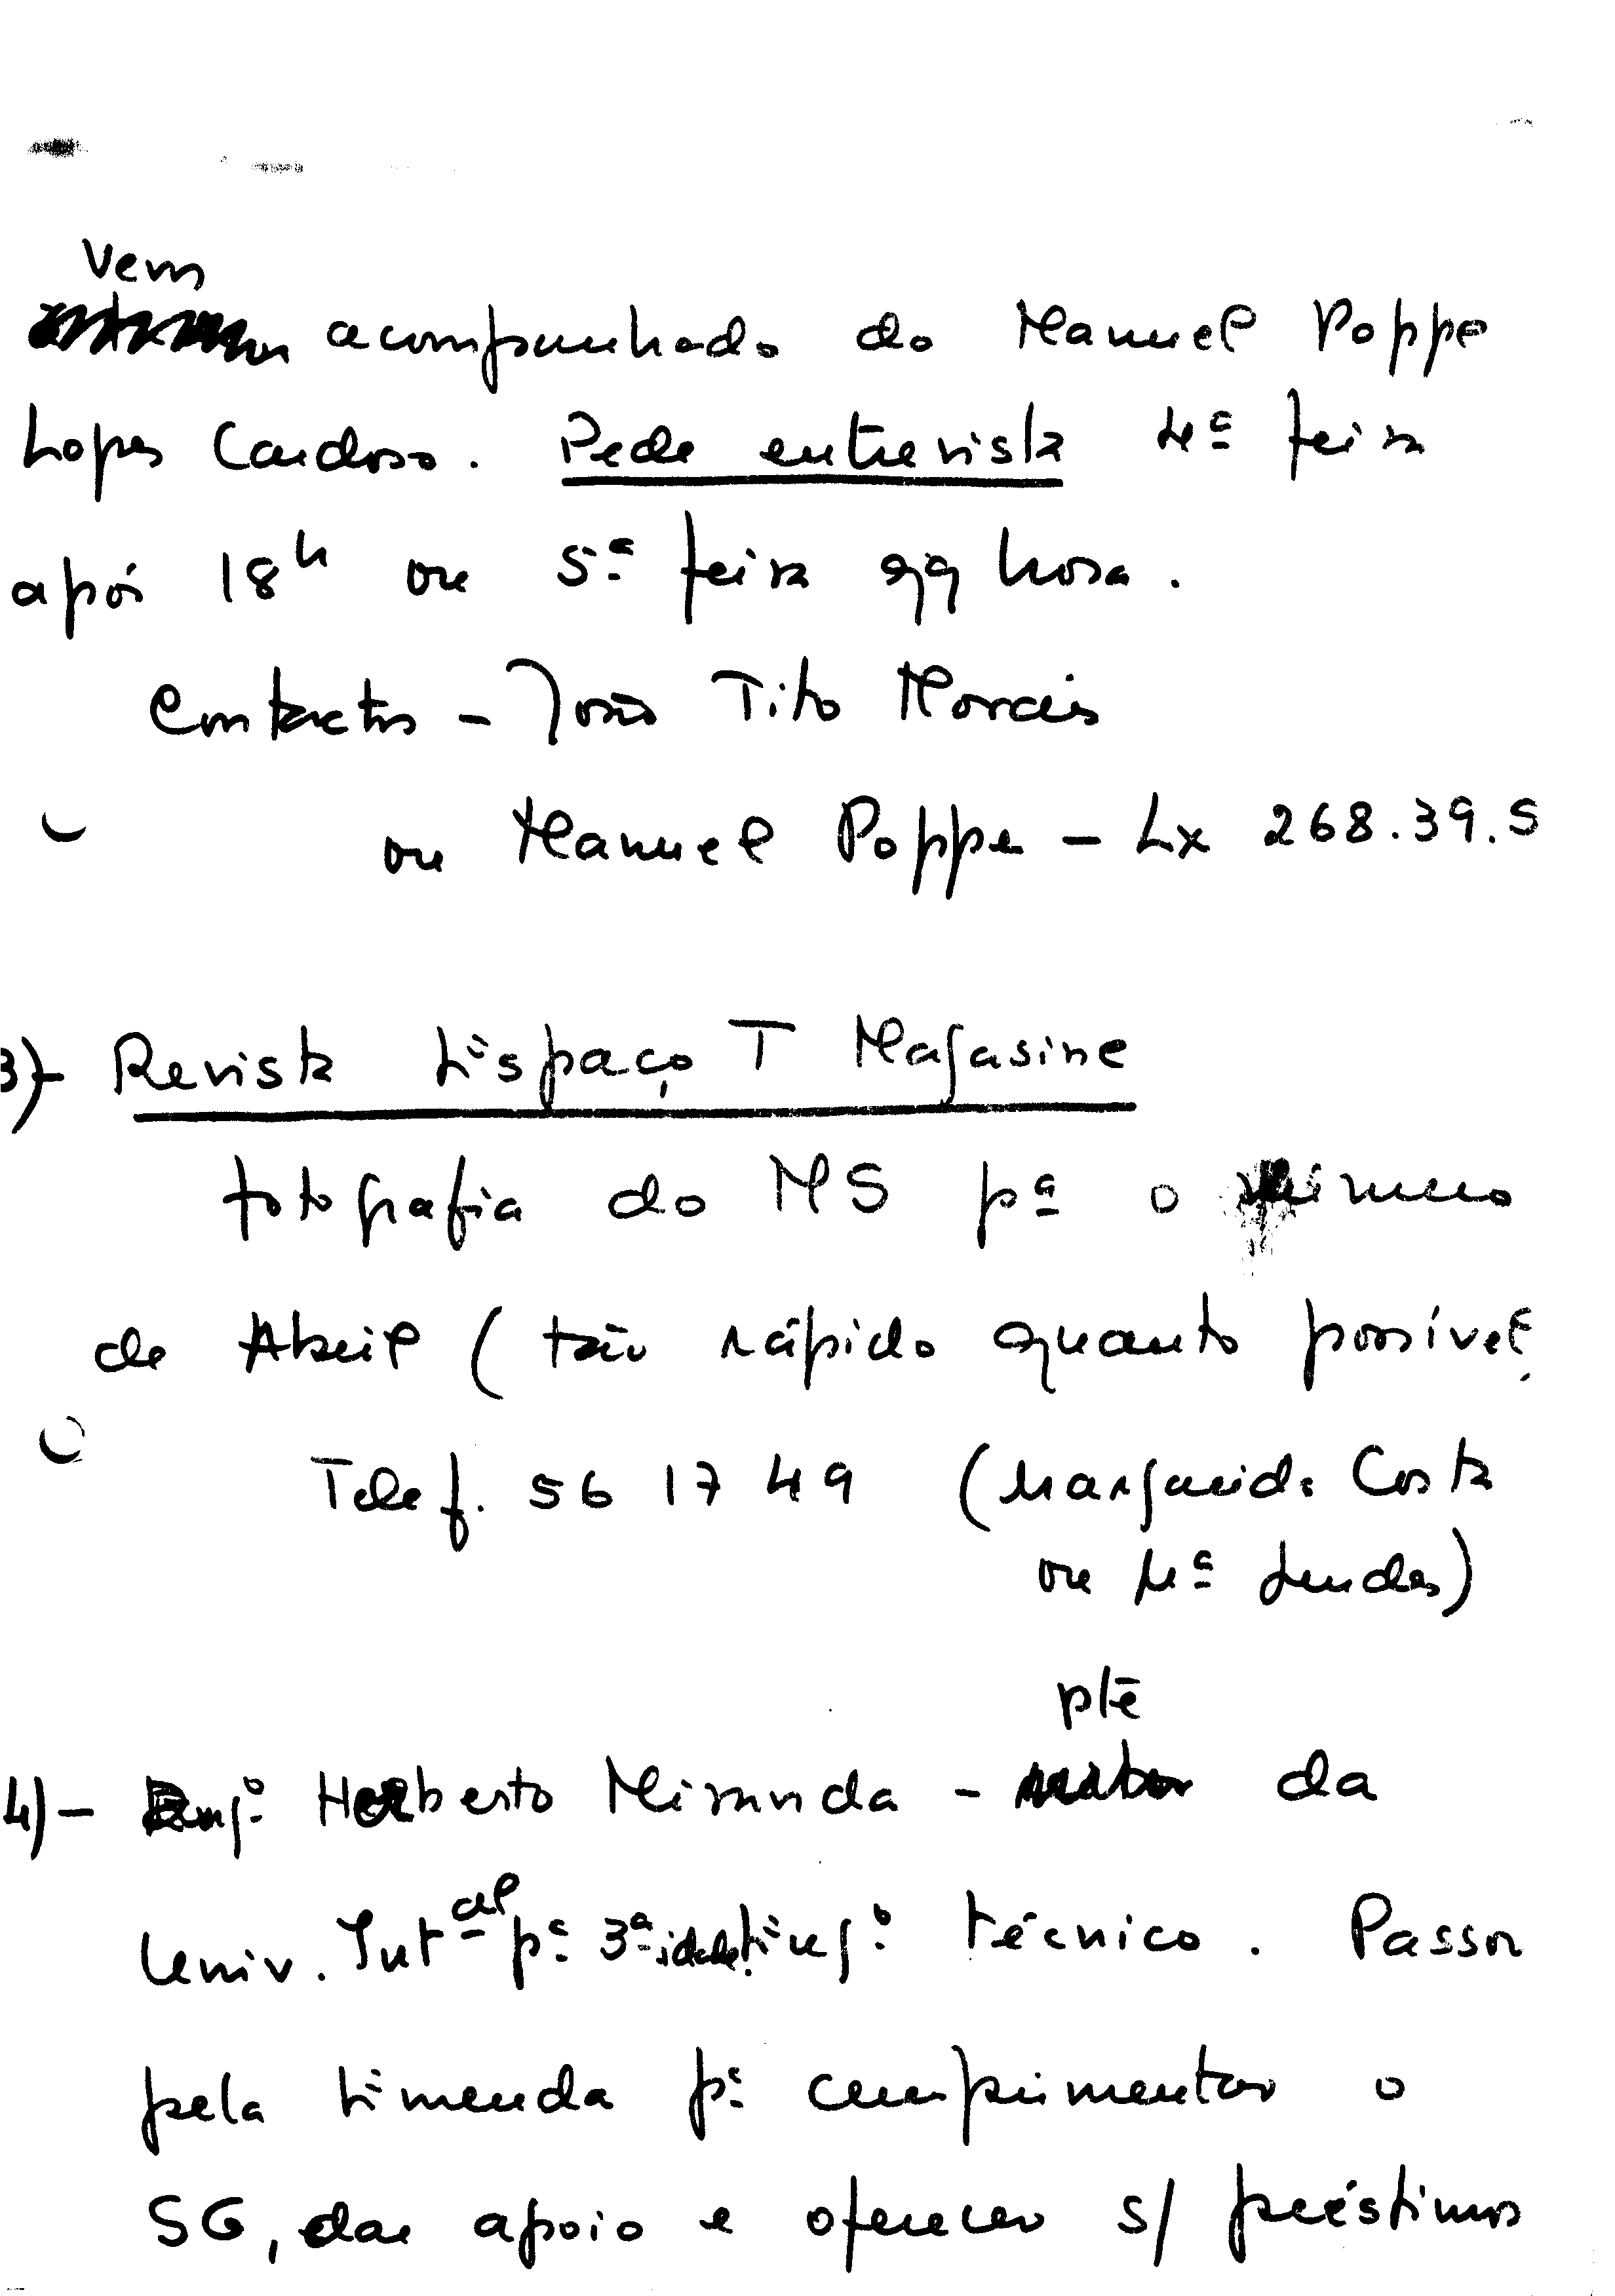 vem
acompanhado do Manuel Poppe
Lopes Cardoso. Pede entrevista 4ª feira
após 18h ou 5ª feira qq hora.
Contactos - João Tito Morais
ou Manuel Poppe - Lx 268.39.5
3)- Revista Espaço T Magasine
fotografia do MS pª o número
de Abril (tão rápido quanto possível
Telef. 56 17 49 (Margarida Costa
ou Mª Lurdes)
ptē
4)- Engº Herberto Miranda - da
Univ. Intal pª 3ª idade. Engº técnico. Passou
pela Emenda pª cumprimentar o
SG, dar apoio e oferecer s/ préstimos